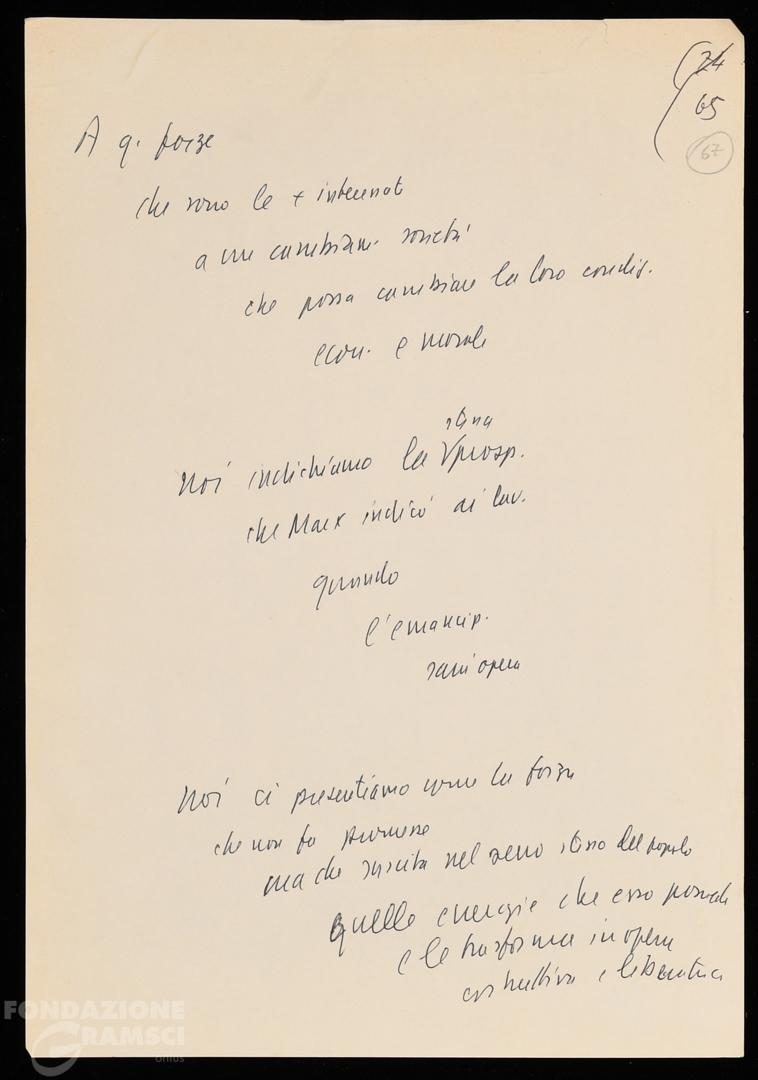 24
65
67
A q. forze
che sono le + interessat
a un cambiam. società
che possa cambiare la loro condiz.
econ. e morale
stessa
Noi indichiamo la prosp.
che Marx indicò ai lav.
quando
l'emancip.
sarà opera
Noi ci presentiamo come la forza
che non fa promesse
ma che suscita nel seno stesso del popolo
quelle energie che esso possiede
e le trasforma in opera
costruttiva e liberatrice
FONDAZIONE
GRAMSCI
onlus